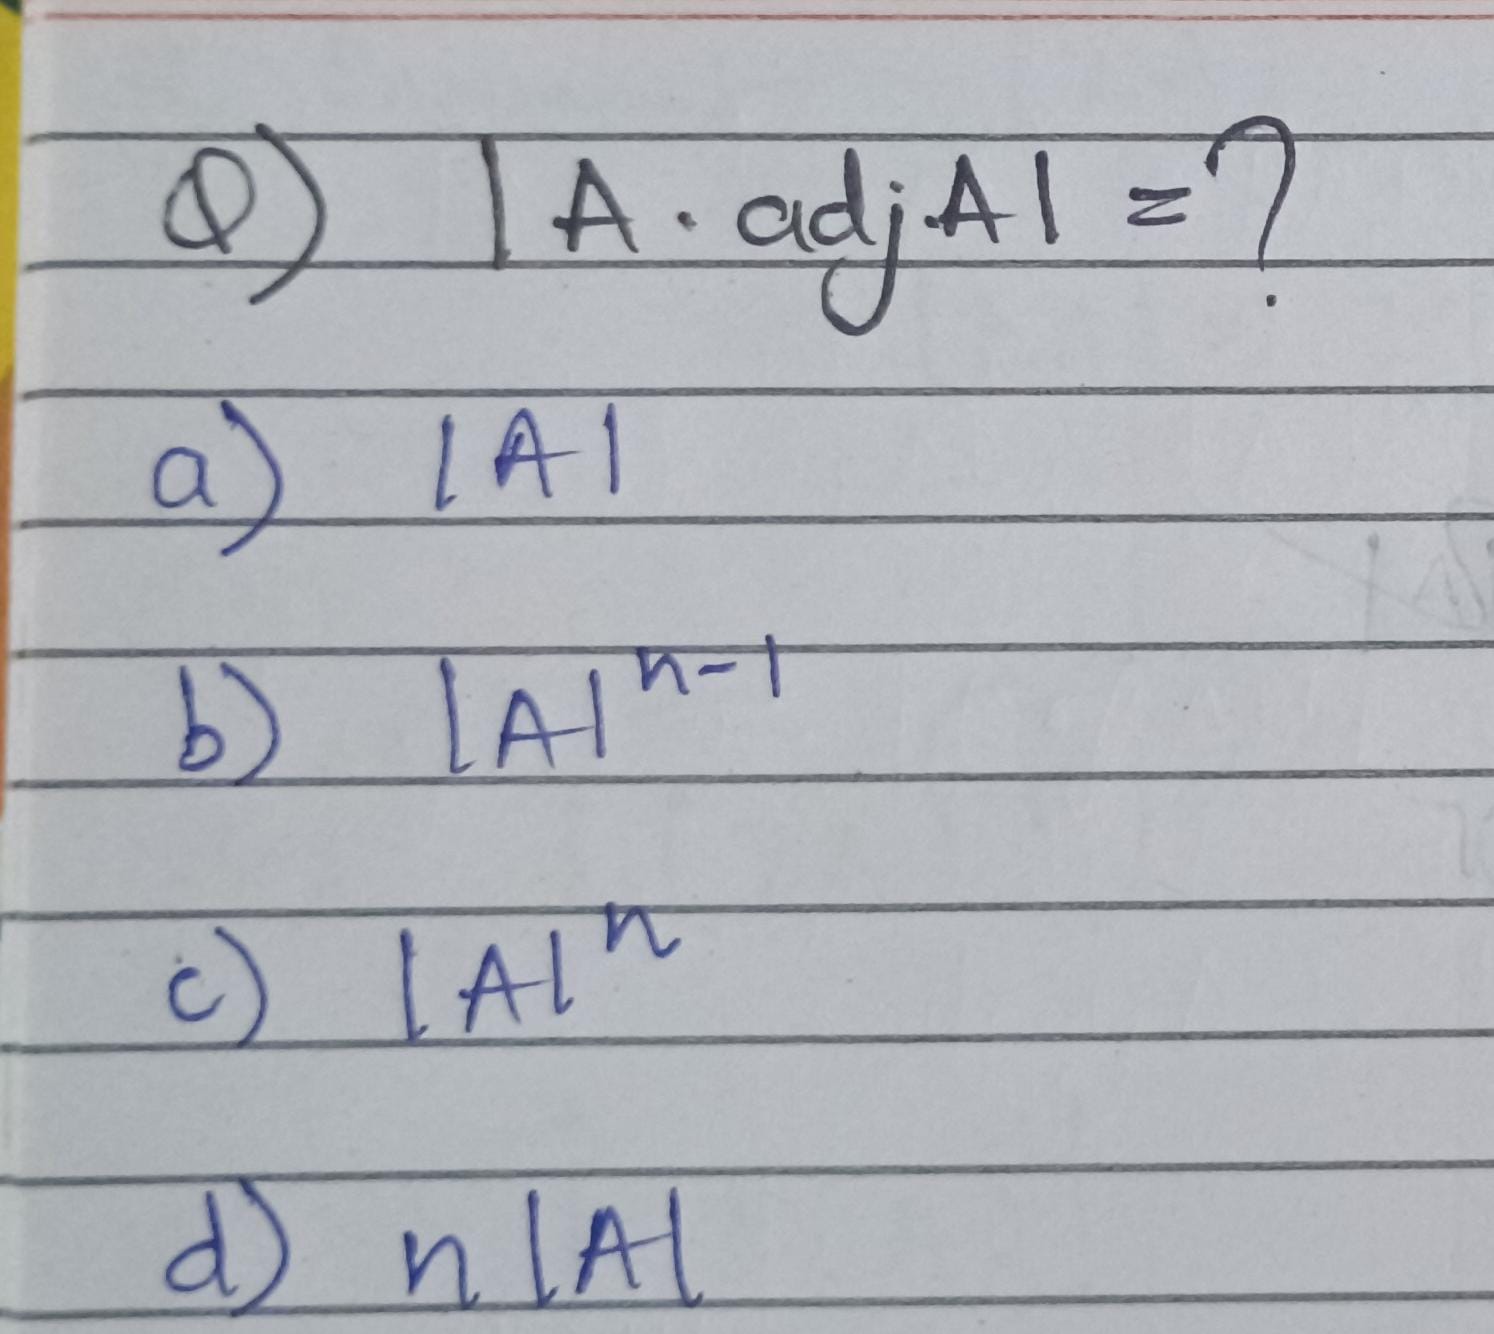 Q) |A. adj.A| = ?
a) |A|
b) |A|ⁿ⁻¹
c) |A|ⁿ
d) n|A|